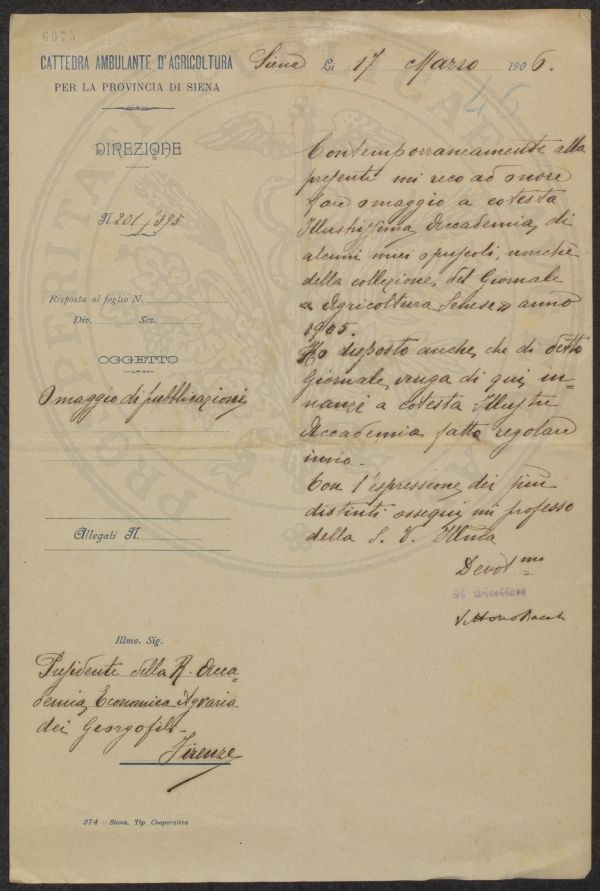 6975
CATTEDRA AMBULANTE D'AGRICOLTURA
PER LA PROVINCIA DI SIENA
Siena Li 17 Marzo 1906.
46
DIREZIONE
N. 201/395
Risposta al foglio N.
Div. Sez.
OGGETTO
Omaggio di pubblicazioni
Allegati N.
Contemporraneamente alla
presente mi reco ad onore
fare omaggio a cotesta
Illustrissima Accademia, di
alcuni miei opuscoli, nonchè
della collezione del Giornale
« Agricoltura Senese » anno
1905.
Ho disposto anche che di detto
Giornale venga di qui in=
nanzi a cotesta Illustre
Accademia fatto regolare
invio.
Con l'espressione dei più
distinti ossequi mi professo
della S. V. Illma
Devot mo
Il Direttore
Vittorio
Illmo. Sig.
Presidente della R. Acca=
demia Economica Agraria
dei Georgofili
Firenze
274 Siena, Tip. Cooperativa